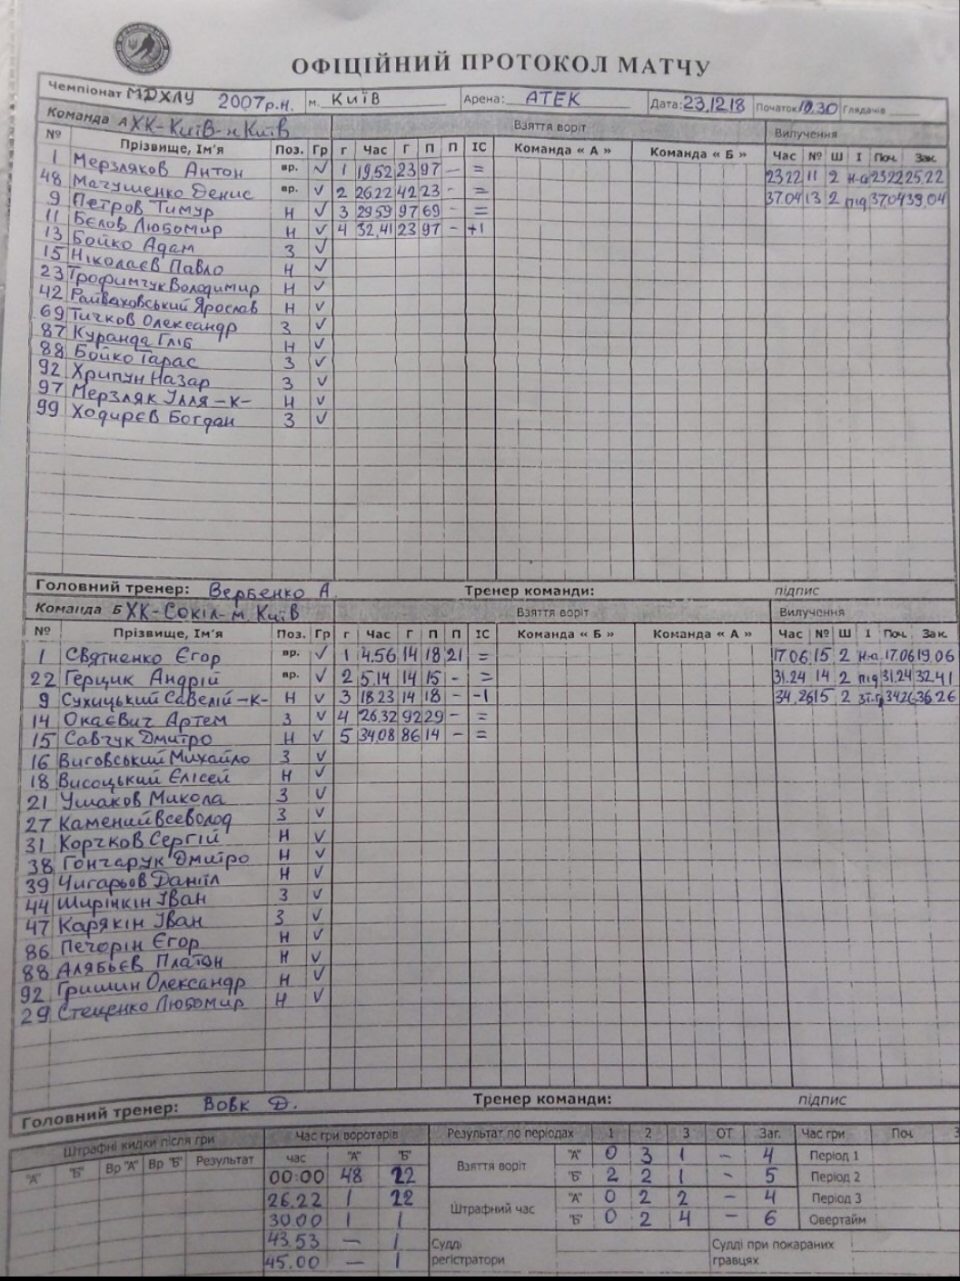 ОФІЦІЙНИЙ ПРОТОКОЛ МАТЧУ
Чемпіонат МДХЛУ 2007р.н. м. Київ Арена: АТЕК Дата: 23.12.18 Початок 10.30 Глядачів
Команда А ХК-Київ-м Київ Взяття воріт Вилучення
№ Прізвище, Ім'я Поз. Гр Г Час Г П П ІС Команда « А » Команда « Б » Час № Ш І Поч. Зак.
1 Мерзляков Антон вр. √ 1 19,52 23 97 – = 23 22 11 2 н-а 23 22 25.22
48 Матушенко Денис вр. √ 2 26.22 42 23 - = 37.04 13 2 під 37.04 39.04
9 Петров Тимур Н √ 3 29.59 97 69 - =
11 Бєлов Любомир Н √ 4 32,41 23 97 - +1
13 Бойко Адам З √
15 Ніколаєв Павло Н √
23 Трофимчук Володимир Н √
42 Райваховський Ярослав Н √
69 Тичков Олександр З √
87 Куранда Гліб Н √
88 Бойко Тарас З √
92 Хрипун Назар З √
97 Мерзляк Ілля -к- Н √
99 Ходирєв Богдан З √
Головний тренер: Вербенко А. Тренер команди: підпис
Команда Б ХК-Сокіл-м Київ Взяття воріт Вилучення
№ Прізвище, Ім'я Поз. Гр Г Час Г П П ІС Команда « Б » Команда « А » Час № Ш І Поч. Зак.
1 Святненко Єгор вр. √ 1 4.56 14 18 21 = 17.06 15 2 н-а 17.06 19.06
22 Герщик Андрій вр. √ 2 5.14 14 15 - = 31.24 14 2 під 31.24 32.41
9 Сухицький Савелій -к- Н √ 3 18.23 14 18 - -1 34,26 15 2 34.26 36.26
14 Окаєвич Артем З √ 4 26,32 92 29 - =
15 Савчук Дмитро Н √ 5 34,08 86 14 - =
16 Виговський Михайло З √
18 Висоцький Єлісей Н √
21 Ушаков Микола З √
27 Камений Всеволод З √
31 Корчков Сергій Н √
38 Гончарук Дмитро Н √
39 Чигарьов Данііл Н √
44 Ширінкін Іван З √
47 Карякін Іван З √
86 Печорін Єгор Н √
88 Алябьєв Платон Н √
92 Гришин Олександр Н √
29 Стеценко Любомир Н √
Головний тренер: Вовк Д. Тренер команди: підпис
Штрафні кидки після гри Час гри воротарів Результат по періодах 1 2 3 ОТ Заг. Час гри Поч. З
"А" "Б" Вр "А" Вр "Б" Результат час "А" "Б" Взяття воріт "А" 0 3 1 – 4 Період 1
00:00 48 22 "Б" 2 2 1 - 5 Період 2
26.22 1 22 Штрафний час "А" 0 2 2 – 4 Період 3
30.00 1 1 "Б" 0 2 4 – 6 Овертайм
43.53 – 1 Судді реєстратори Судді при покараних гравцях
45.00 – 1